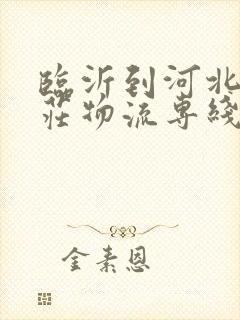 臨沂到河北
莊物流專綫
金素恩